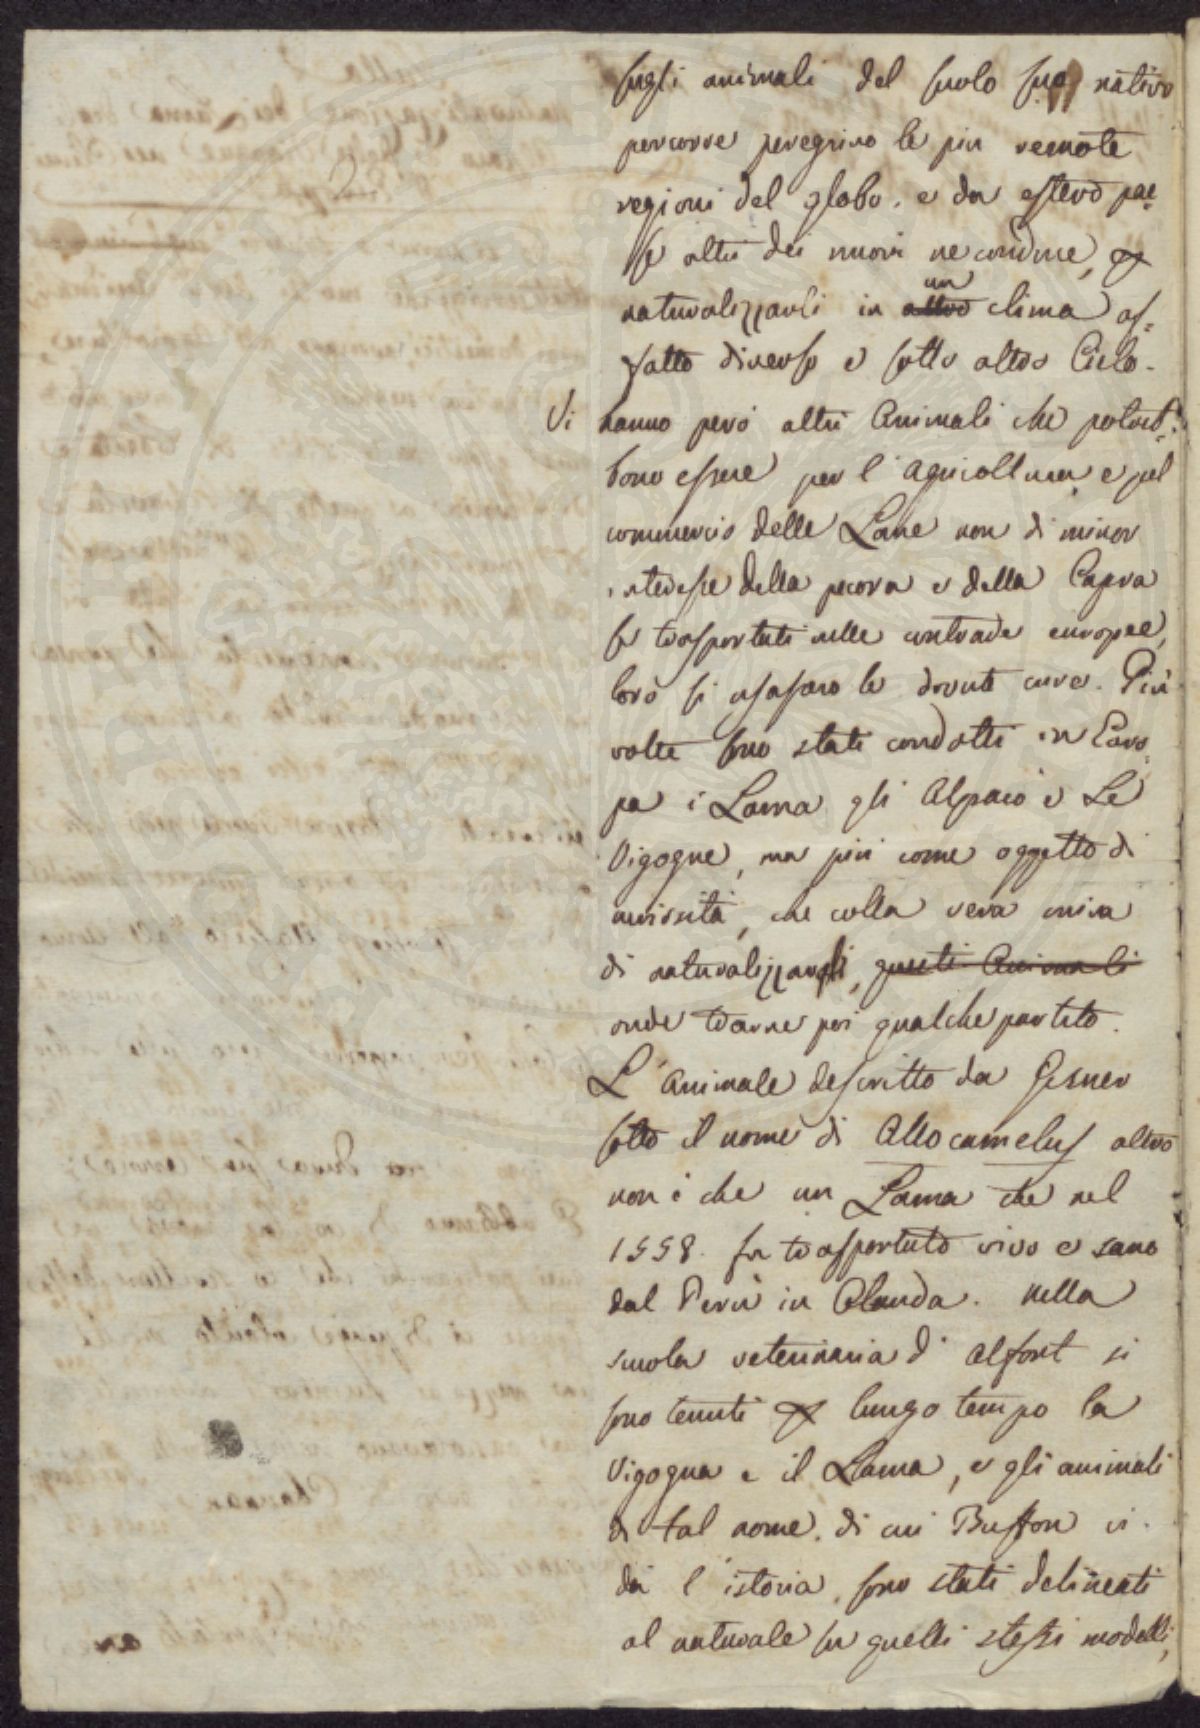 sugli animali del suolo suo nativo
percorre peregrino le piu remote
regioni del globo, e da estero pae-
se altri dei nuovi ne conduce, per
naturalizzarli in altro un clima af-
fatto diverso e sotto altro Cielo.
Vi hanno peró altri Animali che potreb-
bono essere per l'agricoltura, e pel
commercio delle Lane non di minor
interesse della pecora e della Capra
se trasportati nelle contrade europee,
loro si usassero le dovute cure. Piú
volte sono stati condotti in Euro-
pa i Lama gli Alpaco e Le
Vigogne, ma piú come oggetto di
curiositá, che colla vera mira
di naturalizzarli, questi Animali
onde trarne poi qualche partito.
L'Animale descritto da Gesner
sotto il nome di Allocamelus altro
non é che un Lama che nel
1558. fu trasportato vivo e sano
dal Perú in Olanda. nella
scuola veterinaria d'Alfort si
sono tenuti per lungo tempo la
Vigogna e il Lama, e gli animali
di tal nome, di cui Buffon ci
dá l'istoria, sono stati delineati
al naturale su quelli stessi modelli,